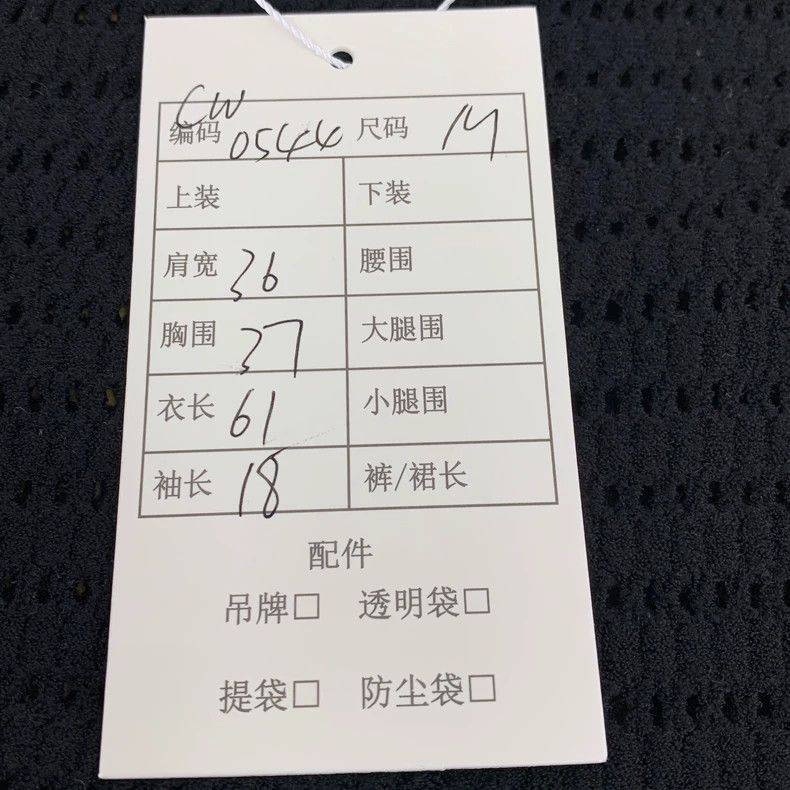 CW
编码 0544 尺码 M
上装 下装
肩宽 36 腰围
胸围 37 大腿围
衣长 61 小腿围
袖长 18 裤/裙长
配件
吊牌□ 透明袋□
提袋□ 防尘袋□